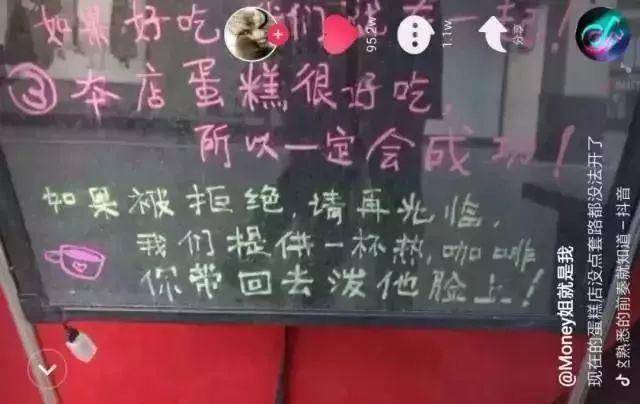 如果好吃,我们就在一起!
③本店蛋糕很好吃,
所以一定会成功!
如果被拒绝,请再光临,
我们提供一杯热咖啡
你带回去泼他脸上!
95.2w
1.1w
分享
@Money姐就是我
现在的蛋糕店没点套路都没法开了
熟悉的前奏就知道 – 抖音